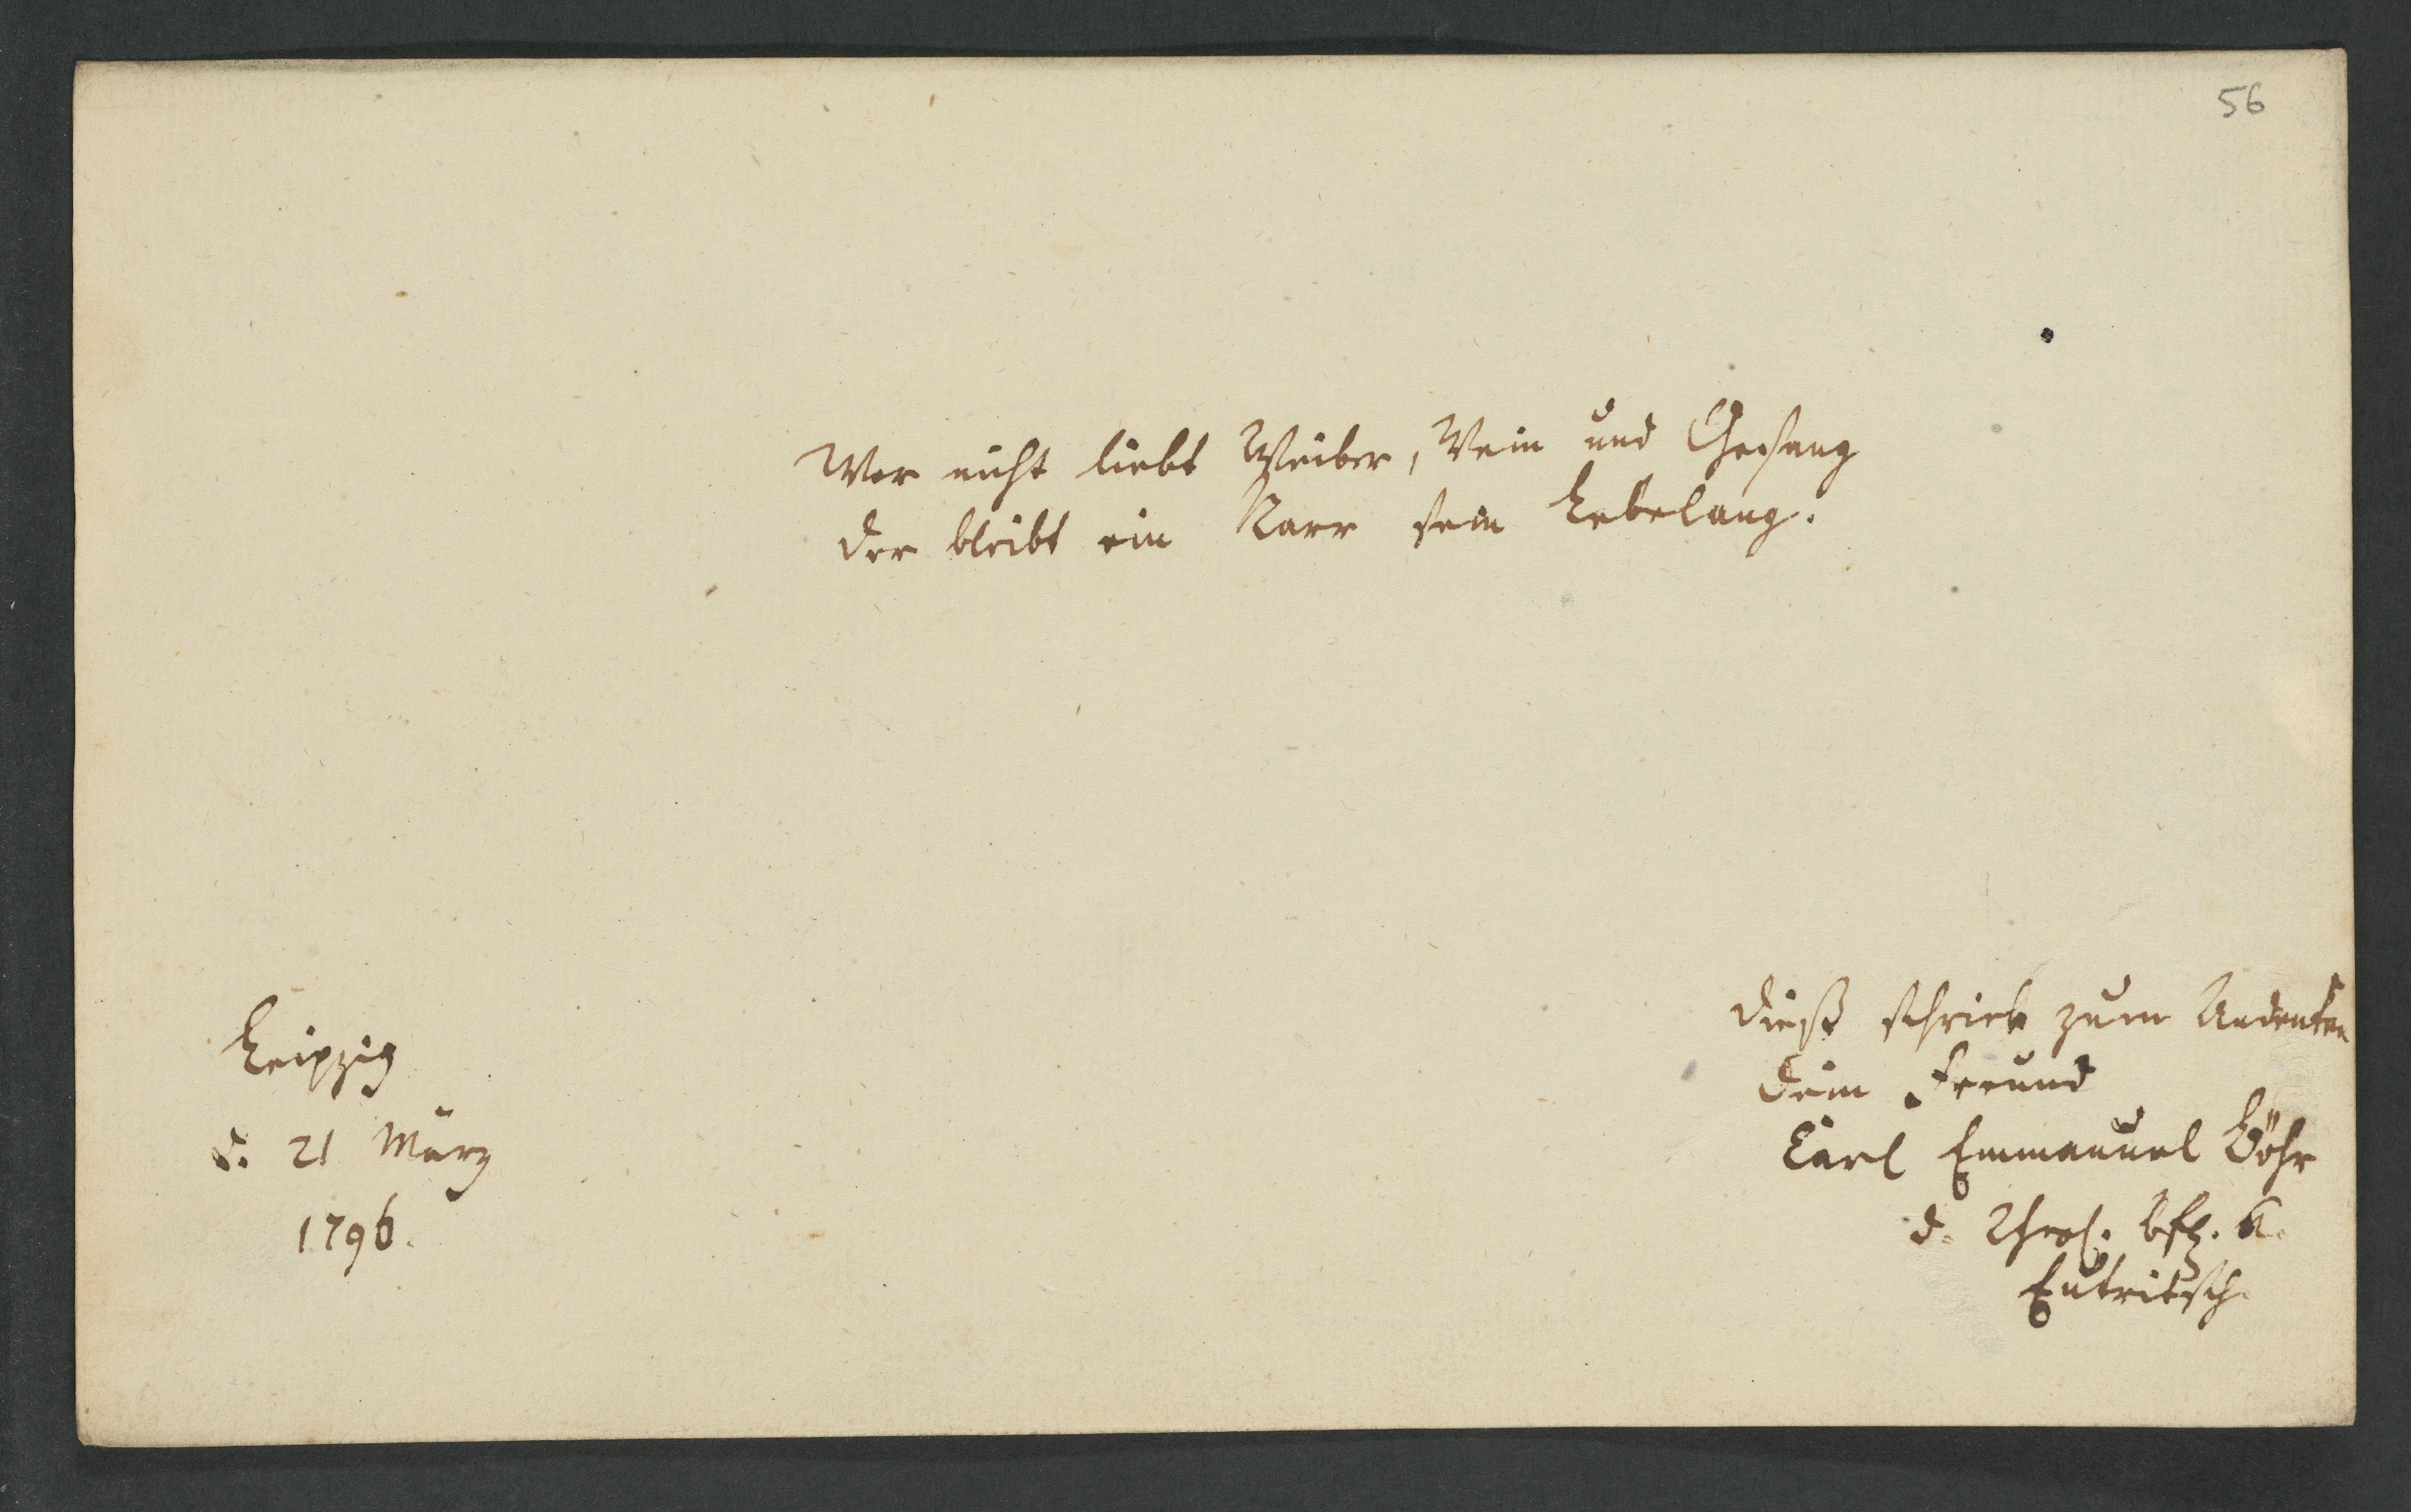 56
Wer nicht liebt Weiber, Wein und Gesang
der bleibt ein Narr sein Lebelang.
Leipzig
d. 21 März
1796.
Dieß schrieb zum Andenken
Dein Freund
Carl Emmanuel Böhr
d. a.
Eutritsch.